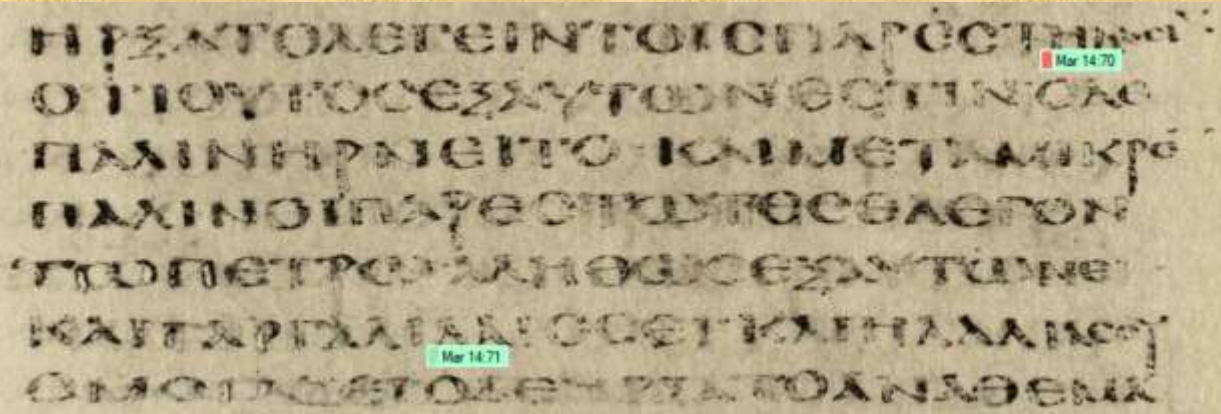 ΗΡΞΑΤΟΛΕΓΕΙΝΤΟΙCΠΑΡΕCΤΗΚΟCΙ
ΟΤΙΟΥΤΟCΕΞΑΥΤΩΝΕCΤΙΝΟΔΕ
Mar 14:70
ΠΑΛΙΝΗΡΝΕΙΤΟ ΚΑΙΜΕΤΑΜΙΚΡΟ
ΠΑΛΙΝΟΙΠΑΡΕCΤΩΤΕCΕΛΕΓΟΝ
ΤΩΠΕΤΡΩ ΑΛΗΘΩCΕΞΑΥΤΩΝΕΙ
ΚΑΙΓΑΡΓΑΛΙΛΑΙΟCΕΙ ΚΑΙΗΛΑΛΙΑCΟΥ
Mar 14:71
ΟΔΕΗΡΞΑΤΟΑΝΑΘΕΜΑ